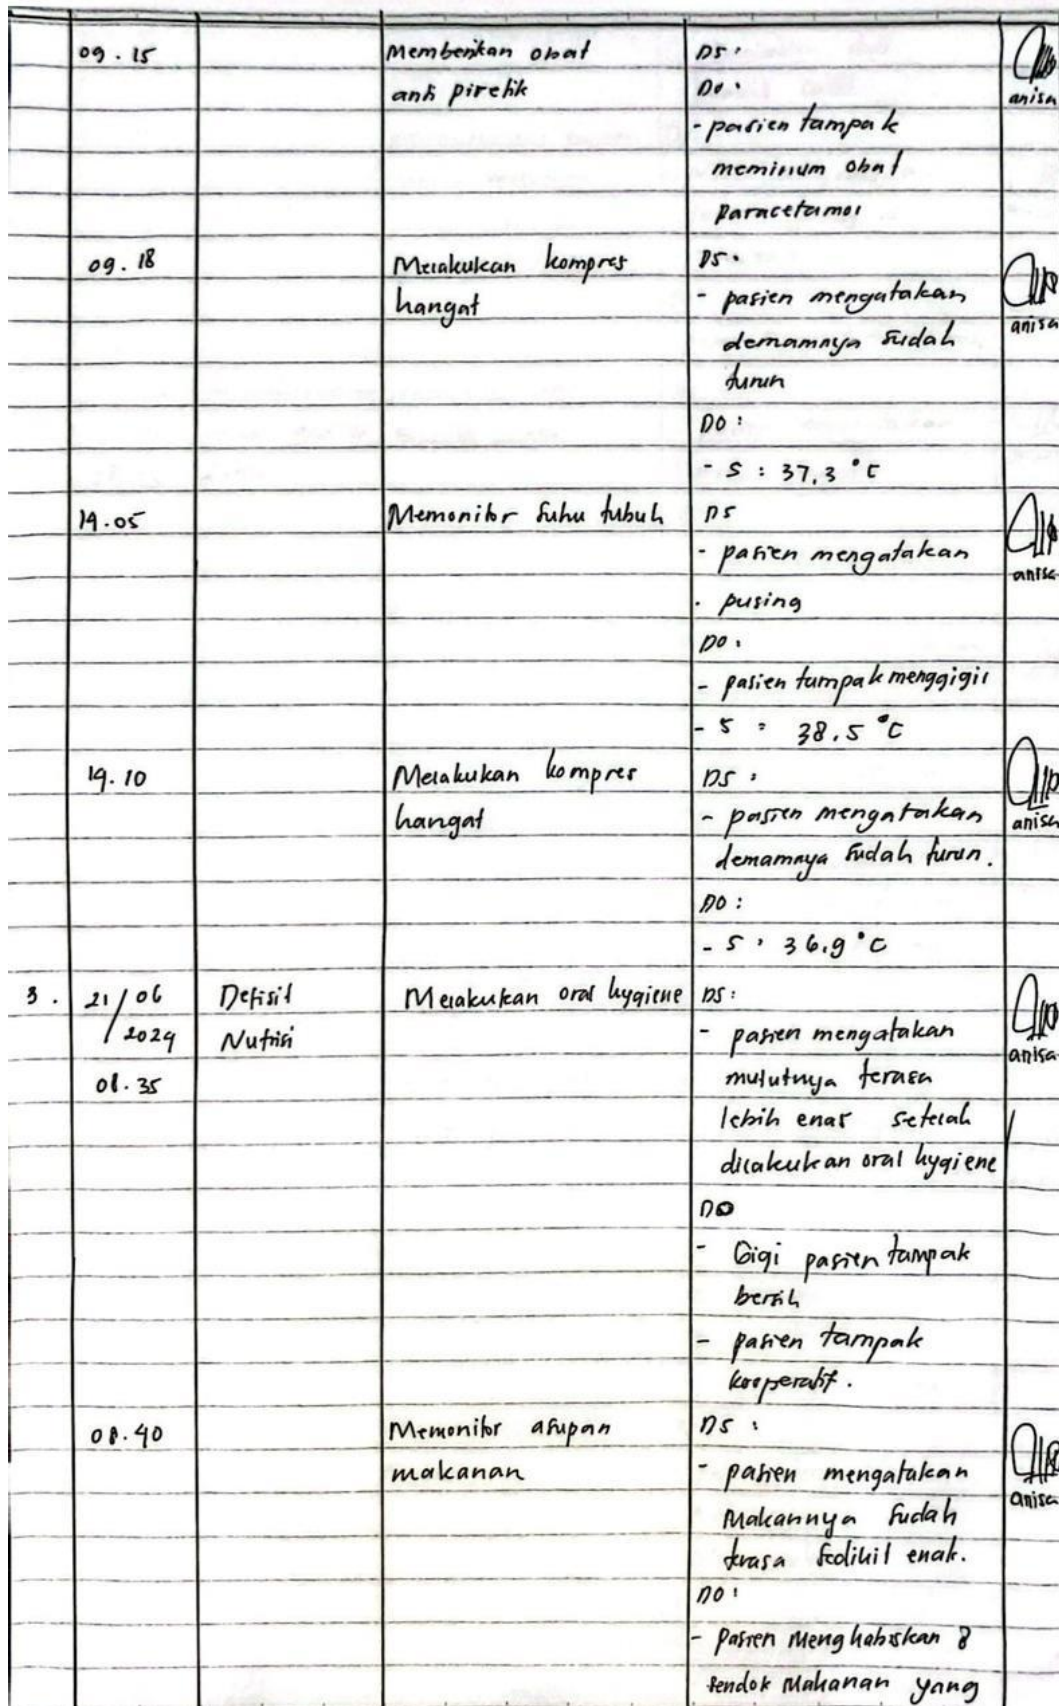 09.15 Memberikan obat DS:
anti piretik DO:
anisa
- pasien tampak
meminum obat
paracetamol
09.18 Melakukan kompres DS:
hangat - pasien mengatakan
anisa
demamnya sudah
turun
DO:
- S : 37,3 °C
14.05 Memonitor suhu tubuh DS
- pasien mengatakan
anisa
pusing
DO:
- pasien tampak menggigil
- S : 38,5 °C
14.10 Melakukan kompres DS:
hangat - pasien mengatakan
anisa
demamnya sudah turun.
DO:
- S : 36,9 °C
3. 21/06 Defisit Melakukan oral hygiene DS:
2024 Nutrisi - pasien mengatakan
anisa
08.35 mulutnya terasa
lebih enak setelah
dilakukan oral hygiene
DO
- Gigi pasien tampak
bersih
- pasien tampak
kooperatif.
08.40 Memonitor asupan DS:
makanan - pasien mengatakan
anisa
makannya sudah
terasa sedikit enak.
DO:
- Pasien menghabiskan 8
sendok makanan yang